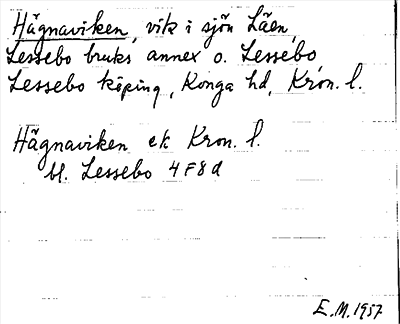 Hägnaviken, vik i sjön Läen,
Lessebo bruks annex o. Lessebo,
Lessebo köping, Konga hd, Kron. l.
Hägnaviken ek Kron. l.
bl. Lessebo 4F8d
E.M. 1957